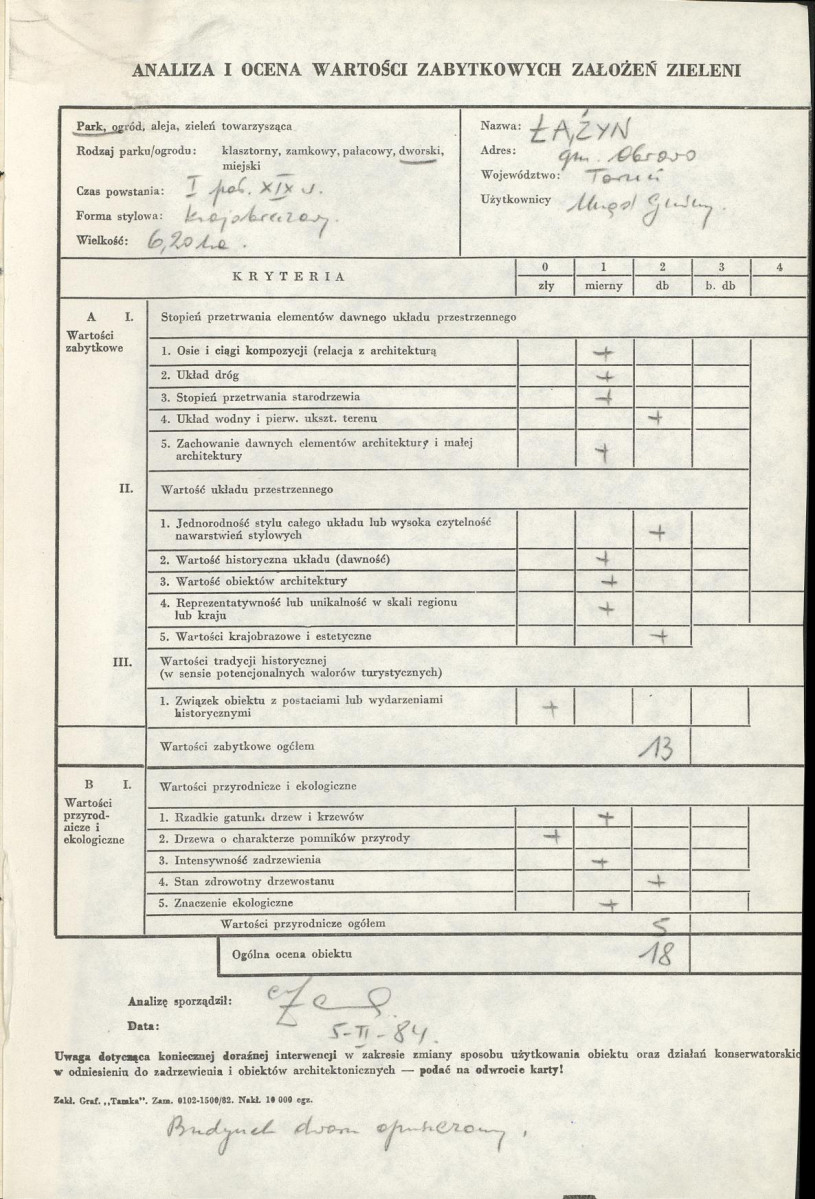 ANALIZA I OCENA WARTOŚCI ZABYTKOWYCH ZAŁOŻEŃ ZIELENI
Park, ogród, aleja, zieleń towarzysząca
Rodzaj parku/ogrodu: klasztorny, zamkowy, pałacowy, dworski,
miejski
Czas powstania: I poł. XIX w.
Forma stylowa: krajobrazowy.
Wielkość: 6,20 ha.
Nazwa: ŁĄŻYN
Adres: gm. Obrowo
Województwo: Toruń
Użytkownicy Urząd Gminy.
KRYTERIA
0 1 2 3 4
zły mierny db b. db
A I. Stopień przetrwania elementów dawnego układu przestrzennego
Wartości
zabytkowe
1. Osie i ciągi kompozycji (relacja z architekturą +
2. Układ dróg +
3. Stopień przetrwania starodrzewia +
4. Układ wodny i pierw. ukszt. terenu +
5. Zachowanie dawnych elementów architektury i małej
architektury +
II. Wartość układu przestrzennego
1. Jednorodność stylu całego układu lub wysoka czytelność
nawarstwień stylowych +
2. Wartość historyczna układu (dawność) +
3. Wartość obiektów architektury +
4. Reprezentatywność lub unikalność w skali regionu
lub kraju +
5. Wartości krajobrazowe i estetyczne +
III. Wartości tradycji historycznej
(w sensie potencjonalnych walorów turystycznych)
1. Związek obiektu z postaciami lub wydarzeniami
historycznymi +
Wartości zabytkowe ogółem 13
B I. Wartości przyrodnicze i ekologiczne
Wartości
przyrod-
nicze i
ekologiczne
1. Rzadkie gatunki drzew i krzewów +
2. Drzewa o charakterze pomników przyrody +
3. Intensywność zadrzewienia +
4. Stan zdrowotny drzewostanu +
5. Znaczenie ekologiczne +
Wartości przyrodnicze ogółem 5
Ogólna ocena obiektu 18
Analizę sporządził:
Data: 5-II-84.
Uwaga dotycząca koniecznej doraźnej interwencji w zakresie zmiany sposobu użytkowania obiektu oraz działań konserwatorskic
w odniesieniu do zadrzewienia i obiektów architektonicznych — podać na odwrocie karty!
Zakł. Graf. „Tamka”. Zam. 0102-1500/82. Nakł. 10 000 egz.
Budynek dworu opuszczony.